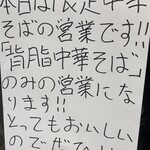 本日は限定中華
そばの営業です!!
「背脂中華そば」
のみの営業にな
ります!!
とってもおいしい
のでぜひ